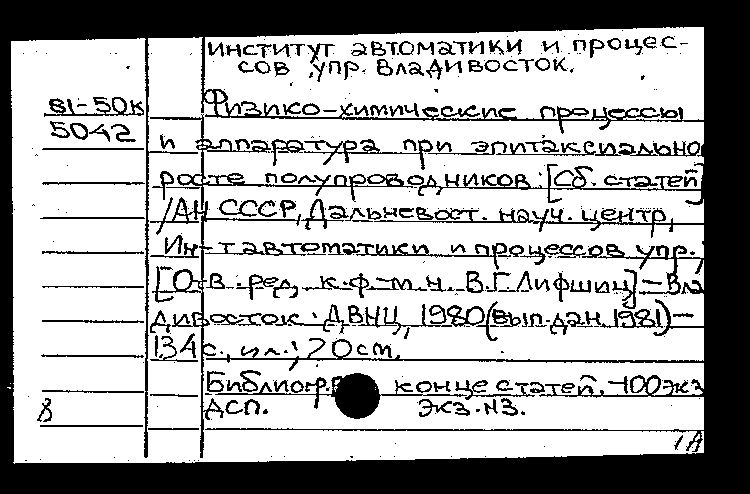 институт автоматики и процес-
сов упр. Владивосток.
81-50к
5042
Физико-химические процессы
и аппаратура при эпитаксиально
росте полупроводников: [Сб. статей]
/АН СССР, Дальневост. науч. центр,
Ин-т автоматики и процессов упр.;
[Отв. ред. к.ф-м.н. В.Г. Лифшиц] - Вла
дивосток: ДВНЦ, 1980 (вып. дан. 1981) -
134 с., ил.; 20 см.
Библиогр. в конце статей. - 100 экз
ДСП. экз. N3.
8
1А